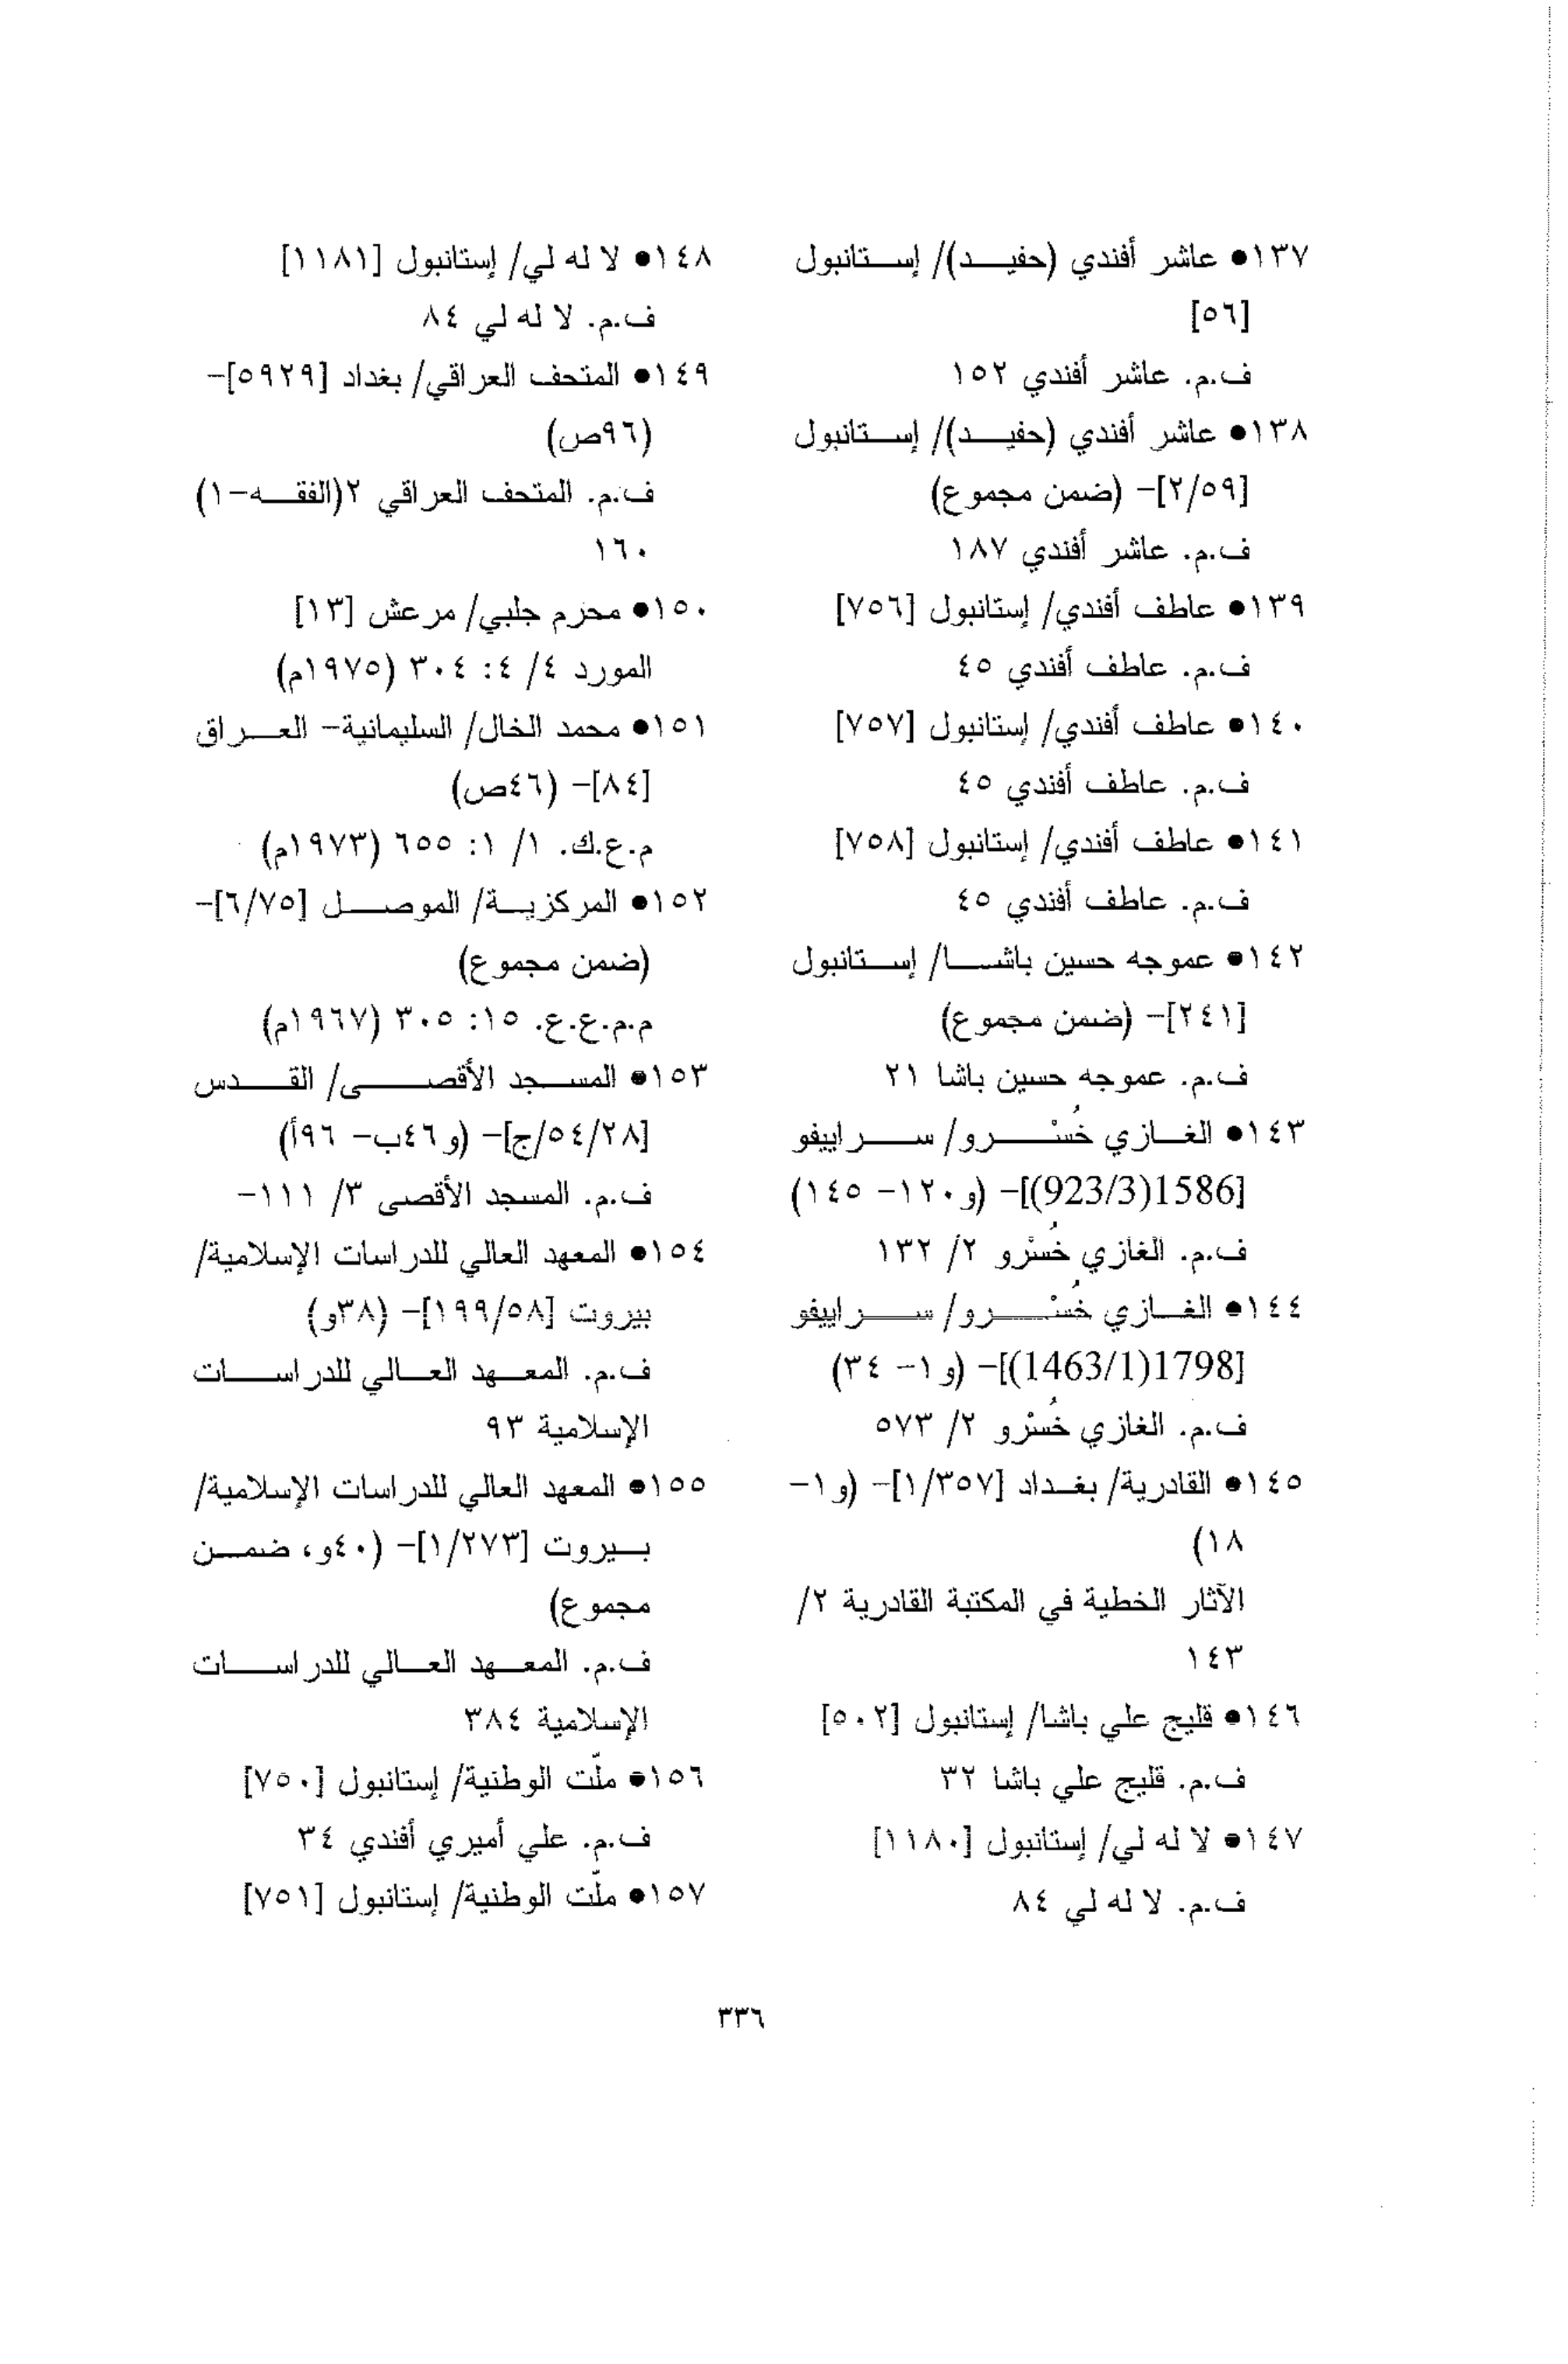 ١٣٧● عاشر أفندي (حفيد)/ إستانبول
[٥٦]
ف.م. عاشر أفندي ١٥٢
١٣٨● عاشر أفندي (حفيد)/ إستانبول
[٢/٥٩]- (ضمن مجموع)
ف.م. عاشر أفندي ١٨٧
١٣٩● عاطف أفندي/ إستانبول [٧٥٦]
ف.م. عاطف أفندي ٤٥
١٤٠● عاطف أفندي/ إستانبول [٧٥٧]
ف.م. عاطف أفندي ٤٥
١٤١● عاطف أفندي/ إستانبول [٧٥٨]
ف.م. عاطف أفندي ٤٥
١٤٢● عموجه حسين باشا/ إستانبول
[٢٤١]- (ضمن مجموع)
ف.م. عموجه حسين باشا ٢١
١٤٣● الغازي خُسْرو/ سراييفو
[1586(923/3)]- (و١٢٠- ١٤٥)
ف.م. الغازي خُسْرو ٢/ ١٣٢
١٤٤● الغازي خُسْرو/ سراييفو
[1798(1463/1)]- (و١- ٣٤)
ف.م. الغازي خُسْرو ٢/ ٥٧٣
١٤٥● القادرية/ بغداد [١/٣٥٧]- (و١-
١٨)
الآثار الخطية في المكتبة القادرية ٢/
١٤٣
١٤٦● قليج علي باشا/ إستانبول [٥٠٢]
ف.م. قليج علي باشا ٣٢
١٤٧● لا له لي/ إستانبول [١١٨٠]
ف.م. لا له لي ٨٤
١٤٨● لا له لي/ إستانبول [١١٨١]
ف.م. لا له لي ٨٤
١٤٩● المتحف العراقي/ بغداد [٥٩٢٩]-
(٩٦ص)
ف.م. المتحف العراقي ٢(الفقه-١)
١٦٠
١٥٠● محرم جلبي/ مرعش [١٣]
المورد ٤/ ٤: ٣٠٤ (١٩٧٥م)
١٥١● محمد الخال/ السليمانية- العراق
[٨٤]- (٤٦ص)
م.ع.ك. ١/ ١: ٦٥٥ (١٩٧٣م)
١٥٢● المركزية/ الموصل [٦/٧٥]-
(ضمن مجموع)
م.م.ع.ع. ١٥: ٣٠٥ (١٩٦٧م)
١٥٣● المسجد الأقصى/ القدس
[٢٨/٥٤/ج]- (و٤٦ب- ٩٦أ)
ف.م. المسجد الأقصى ٣/ ١١١-
١٥٤● المعهد العالي للدراسات الإسلامية/
بيروت [١٩٩/٥٨]- (٣٨و)
ف.م. المعهد العالي للدراسات
الإسلامية ٩٣
١٥٥● المعهد العالي للدراسات الإسلامية/
بيروت [١/٢٧٣]- (٤٠و، ضمن
مجموع)
ف.م. المعهد العالي للدراسات
الإسلامية ٣٨٤
١٥٦● ملّت الوطنية/ إستانبول [٧٥٠]
ف.م. علي أميري أفندي ٣٤
١٥٧● ملّت الوطنية/ إستانبول [٧٥١]
٣٣٦